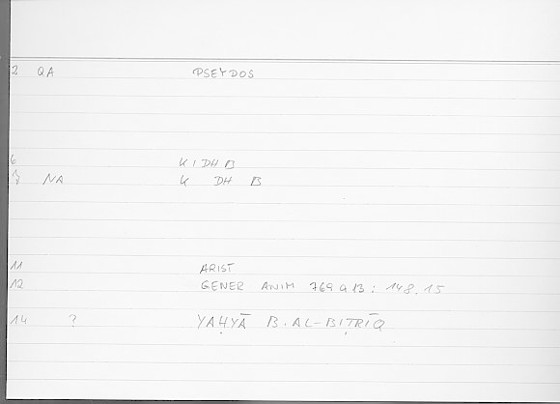 2 QA PSEYDOS
6 KIDH B
7 NA K DH B
11 ARIST
12 GENER ANIM 769 a 13 : 148.15
14 ? YAḤYĀ B. AL-BIṬRĪQ